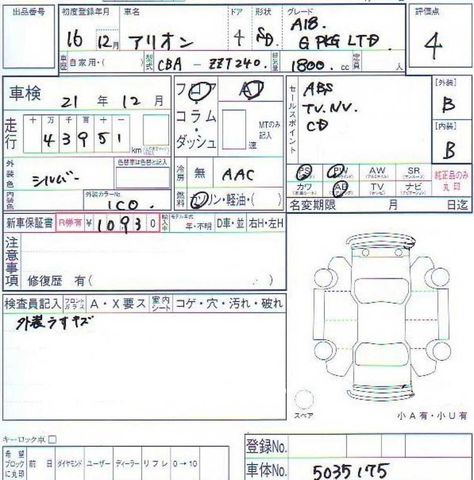 出品番号 初度登録年月 車名 ドア 形状 グレード 評価点
16 12月 アリオン 4 SD A18 G PKG LTD 4
車歴 自家用・( ) 型式 CBA - ZZT240. 排気量 1800.cc 定員 人
車検 21年 12月 フロア AT セールスポイント ABS TV.NV. CD [外装] B
コラム・ダッシュ MTのみ記入 速
走行 十万 万 千 百 十 一
43951 km
[内装] B
外装色 シルバー 色替車は色替色と記入 冷房 無 AAC PS PW AW SR 純正品のみ丸印
内装色 外装カラーNo. 1C0. 燃料 ガソリン・軽油・( ) カワ AB TV ナビ
名変期限 月 日迄
新車保証書 R券有 ¥10930 モデル年式 年・不明 D車・並 右H・左H
注意事項
修復歴 有( )
検査員記入 フロントガラス A・X要ス 室内シート コゲ・穴・汚れ・破れ
外装うすキズ
スペア 小A有・小U有
キーロック車
希望ブロックに丸印 前日 ダイヤモンド ユーザー ディーラー リフレ 0→10
登録No.
車体No. 5035175